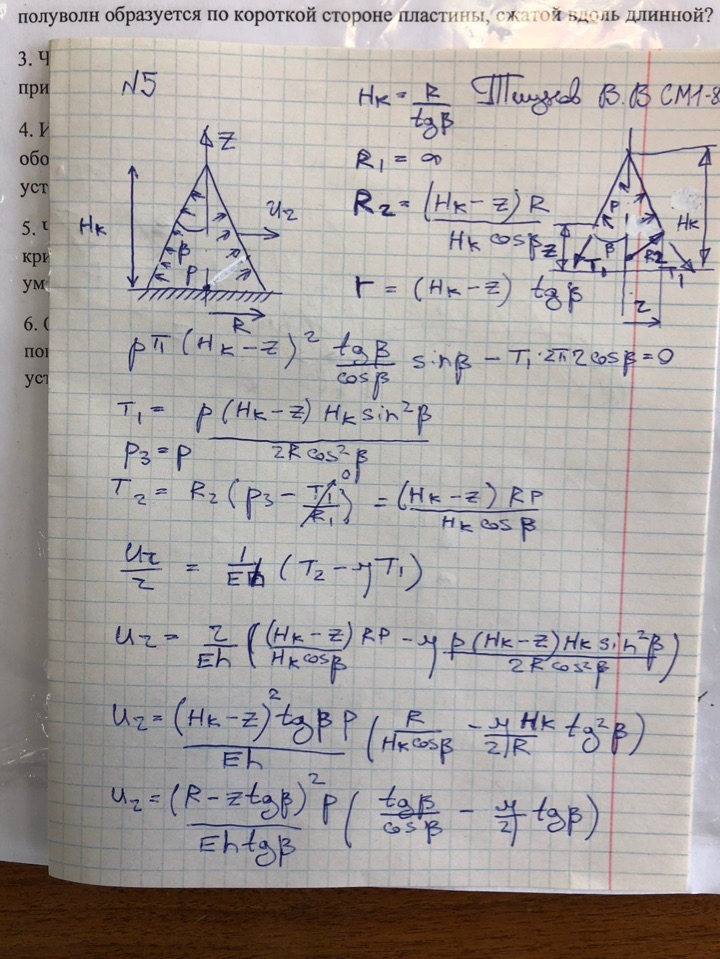 полуволн образуется по короткой стороне пластины, сжатой вдоль длинной?
3. Ч
при
4. И
обо
уст
5. Ч
кри
ум
6. О
пов
уст
№5
Hк = R / tgβ
В.В СМ1-8
R₁ = ∞
R₂ = (Hк − z) R / Hк cosβ
r = (Hк − z) tgβ
Z
Hк
β
P
U₂
R
P
Hк
z
β
R₂
T₁
T₁
r
pπ (Hк − z)² tgβ / cosβ sinβ − T₁·2π2cosβ = 0
T₁ = p (Hк − z) Hк sin²β / 2R cos²β
P₃ = P
T₂ = R₂ (P₃ − T₁ / R₁) = (Hк − z) RP / Hк cosβ
0
U₂ / 2 = 1 / Eh (T₂ − μT₁)
U₂ = 2 / Eh ( (Hк − z) RP / Hк cosβ − μ p (Hк − z) Hк sin²β / 2R cos²β )
U₂ = (Hк − z)² tgβ P / Eh ( R / Hк cosβ − μ Hк / 2R tg²β )
U₂ = (R − z tgβ)² P / Eh tgβ ( tgβ / cosβ − μ / 2 tgβ )